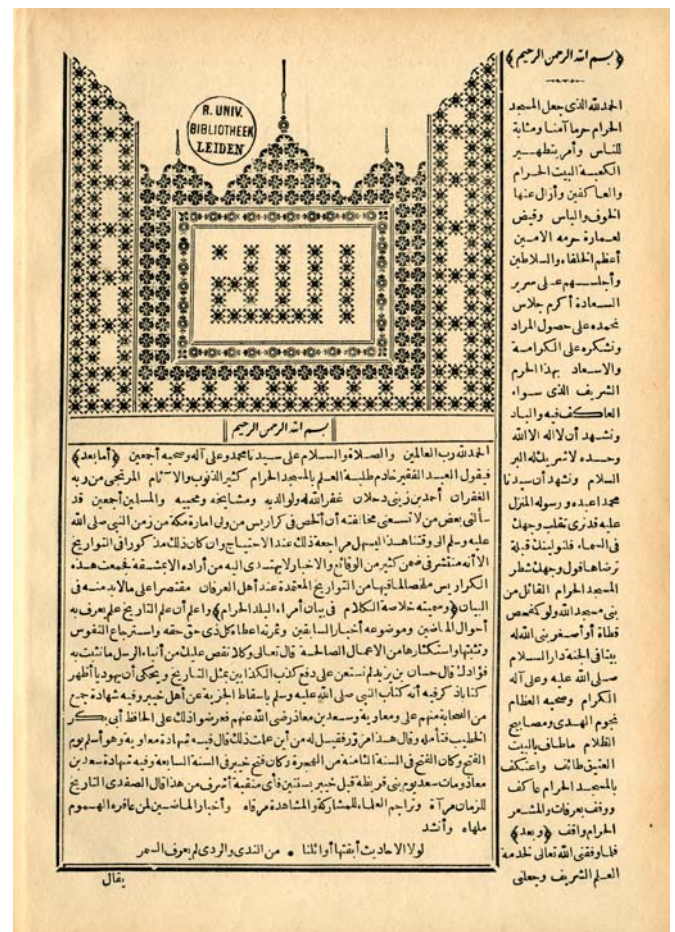 R. UNIV.
BIBLIOTHEEK
LEIDEN
الله
بسم الله الرحمن الرحيم
الحمد لله رب العالمين والصلاة والسلام على سيدنا محمد وعلى آله وصحبه أجمعين ﴿أما بعد﴾
فيقول العبد الفقير خادم طلبة العلم بالمسجد الحرام كثير الذنوب والآثام المرتجى من ربه
الغفران أحمد بن زينى دحلان غفر الله له ولوالديه ومشايخه ومحبيه والمسلمين أجمعين قد
سألنى بعض من لا تسعنى مخالفته أن ألخص فى كراريس من ولى امارة مكة من زمن النبى صلى الله
عليه وسلم الى وقتنا هذا ليسهل مراجعة ذلك عند الاحتياج وان كان ذلك مذكورا فى التواريخ
الا أنه منتشر فى ضمن كثير من الوقائع والاخبار لا يهتدى اليه من أراده الا بمشقة فجمعت هذه
الكراريس ملخصا لما فيها من التواريخ المعتمدة عند أهل العرفان مقتصرا على ما لا بد منه فى
البيان ﴿وسميته خلاصة الكلام فى بيان أمراء البلد الحرام﴾ واعلم أن علم التاريخ علم يعرف به
أحوال الماضين وموضوعه أخبار السابقين وثمرته اعطاء كل ذى حق حقه واسترجاع النفوس
وتثبتها واستكثارها من الاعمال الصالحة قال تعالى وكلا نقص عليك من أنباء الرسل ما نثبت به
فؤادك قال حسان بن يزيد لم نستعن على دفع كذب الكذابين بمثل التاريخ ويحكى أن يهوديا أظهر
كتابا ذكر فيه أنه كتاب النبى صلى الله عليه وسلم باسقاط الجزية عن أهل خيبر وفيه شهادة جمع
من الصحابة منهم على ومعاوية وسعد بن معاذ رضى الله عنهم فعرضوا ذلك على الحافظ أبى بكر
الخطيب فتأمله وقال هذا مزور فقيل له من أين علمت ذلك قال فيه شهادة معاوية وهو أسلم يوم
الفتح وكان الفتح فى السنة الثامنة من الهجرة وكان فتح خيبر فى السنة السابعة وفيه شهادة سعد بن
معاذ ومات سعد يوم بنى قريظة قبل خيبر بسنتين فأى منقبة أشرف من هذا قال الصفدى التاريخ
للزمان مرآة وتراجم العلماء للمشاركة والمشاهدة مرقاه وأخبار الماضين لمن عاقره الهموم
ملهاه وأنشد
لولا الاحاديث أبقتها أوائلنا • من الندى والردى لم يعرف السمر
يقال
﴿بسم الله الرحمن الرحيم﴾
الحمد لله الذى جعل المسجد
الحرام حرما آمنا ومثابة
للناس وأمر بتطهير
الكعبة البيت الحرام
والعاكفين وأزال عنها
الخوف والباس وقيض
لعمارة حرمه الامين
أعظم الخلفاء والسلاطين
وأجلسهم على سرير
السعادة أكرم جلاس
نحمده على حصول المراد
ونشكره على الكرامة
والاسعاد بهذا الحرم
الشريف الذى سواء
العاكف فيه والباد
ونشهد أن لا اله الا الله
وحده لا شريك له البر
السلام ونشهد أن سيدنا
محمدا عبده ورسوله المنزل
عليه قد نرى تقلب وجهك
فى السماء فلنولينك قبلة
ترضاها فول وجهك شطر
المسجد الحرام القائل من
بنى مسجدا لله ولو كمفحص
قطاة أو أصغر بنى الله له
بيتا فى الجنة دار السلام
صلى الله عليه وعلى آله
الكرام وصحبه العظام
نجوم الهدى ومصابيح
الظلام ما طاف بالبيت
العتيق طائف واعتكف
بالمسجد الحرام عاكف
ووقف بعرفات والمشعر
الحرام واقف ﴿وبعد﴾
فلما وفقنى الله تعالى لخدمة
العلم الشريف وجعلنى